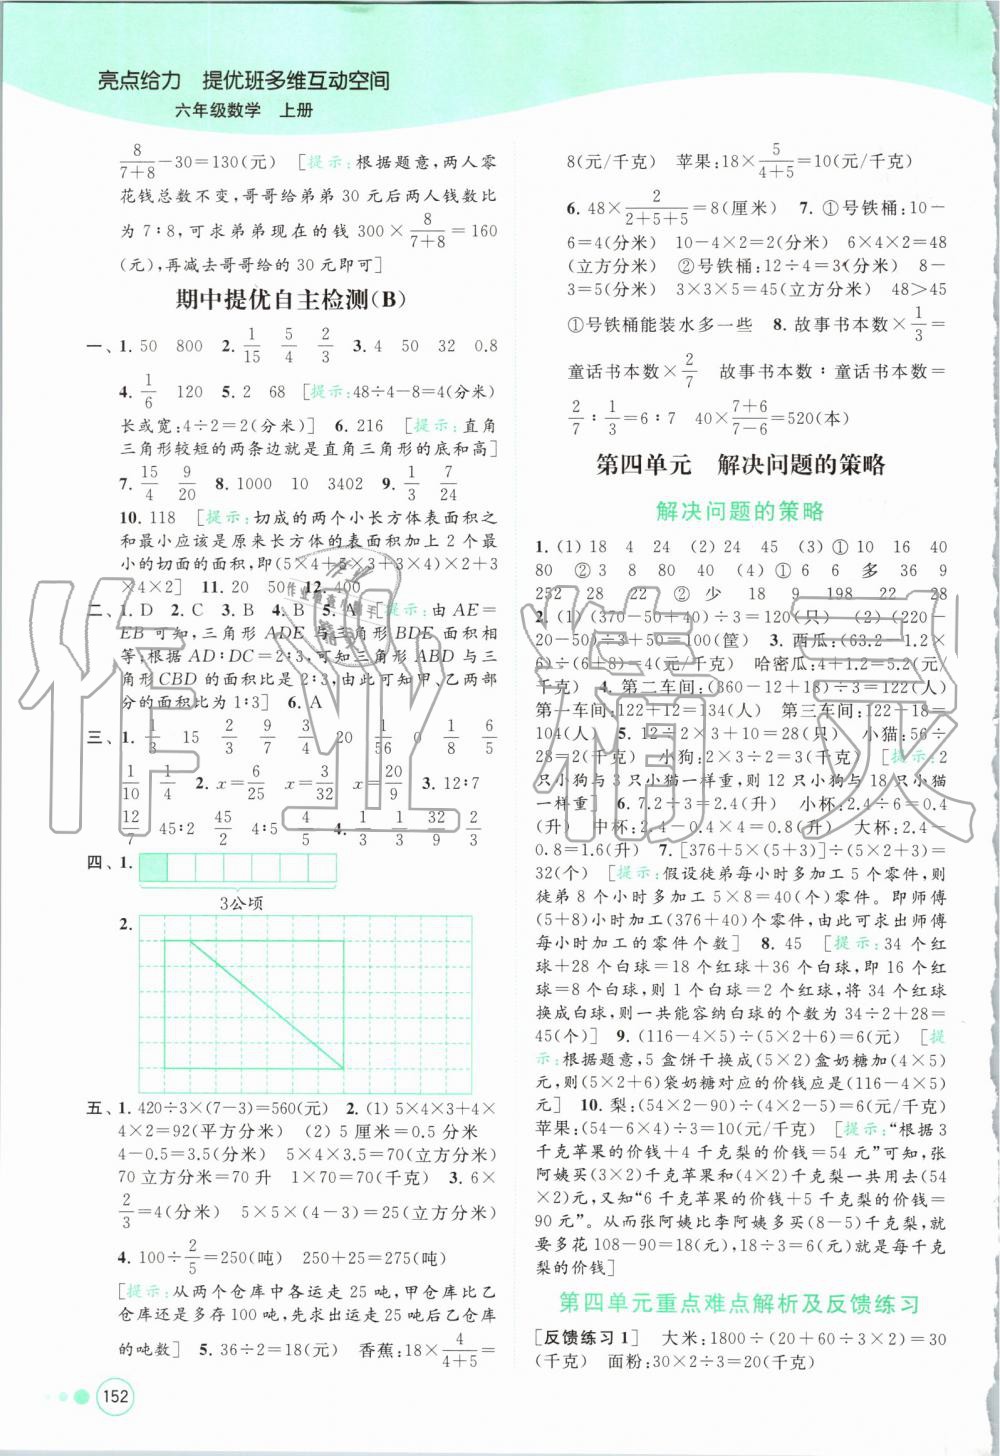 亮点给力 提优班多维互动空间
六年级数学 上册
8/(7+8)－30＝130(元) [提示:根据题意,两人零
花钱总数不变,哥哥给弟弟 30 元后两人钱数比
为 7∶8,可求弟弟现在的钱 300×8/(7+8)＝160
(元),再减去哥哥给的 30 元即可]
期中提优自主检测(B)
一、1. 50 800 2. 1/15 5/4 2/3 3. 4 50 32 0.8
4. 1/6 120 5. 2 68 [提示:48÷4－8＝4(分米)
长或宽:4÷2＝2(分米)] 6. 216 [提示:直角
三角形较短的两条边就是直角三角形的底和高]
7. 15/4 9/20 8. 1000 10 3402 9. 1/3 7/24
10. 118 [提示:切成的两个小长方体表面积之
和最小应该是原来长方体的表面积加上 2 个最
小面的面积,即(5×4＋5×3＋3×4)×2＋3
×4×2] 11. 20 50 12. 400
二、1. D 2. C 3. B 4. B 5. A [提示:由 AE＝
EB 可知,三角形 ADE 与三角形 BDE 面积相
等;根据 AD∶DC＝2∶3,可知三角形 ABD 与三
角形 CBD 的面积比是 2∶3,由此可知甲、乙两部
分的面积比为 1∶3] 6. A
三、1. 1/3 15 2/3 9/7 3/4 20 1/56 0 1/8 6/5
1/10 1/4 2. x＝6/25 x＝3/32 x＝20/9 3. 12∶7
12/7 45∶2 45/2 4∶5 4/5 4. 1/3 1/3 32/9 2/3
四、1.
3公顷
2.
五、1. 420÷3×(7－3)＝560(元) 2. (1) 5×4×3＋4×
4×2＝92(平方分米) (2) 5 厘米＝0.5 分米
4－0.5＝3.5(分米) 5×4×3.5＝70(立方分米)
70 立方分米＝70 升 1×70＝70(千克) 3. 6×
2/3＝4(分米) 5×5×(4－3)＝25(立方分米)
4. 100÷2/5＝250(吨) 250＋25＝275(吨)
[提示:从两个仓库中各运走 25 吨,甲仓库比乙
仓库还是多存 100 吨,先求出运走25吨后乙仓库
的吨数] 5. 36÷2＝18(元) 香蕉:18×4/(4+5)＝
8(元/千克) 苹果:18×5/(4+5)＝10(元/千克)
6. 48×2/(2+5+5)＝8(厘米) 7. ①号铁桶:10－
6＝4(分米) 10－4×2＝2(分米) 6×4×2＝48
(立方分米) ②号铁桶:12÷4＝3(分米) 8－
3＝5(分米) 3×3×5＝45(立方分米) 48＞45
①号铁桶能装水多一些 8. 故事书本数×1/3＝
童话书本数×2/7 故事书本数∶童话书本数＝
2/7∶1/3＝6∶7 40×(7+6)/(7-6)＝520(本)
第四单元 解决问题的策略
解决问题的策略
1. (1) 18 4 24 (2) 24 45 (3) ① 10 16 40
80 ② 3 8 80 40 (4) ① 6 6 多 36 9
252 28 22 ② 少 18 9 198 22 28
2. (1) (370－50＋40)÷3＝120(只) (2) (220－
20－50)÷3＋50＝100(筐) 3. 西瓜:(63.2－1.2×
6)÷(6＋8)＝4(元/千克) 哈密瓜:4＋1.2＝5.2(元/
千克) 4. 第二车间:(360－12＋18)÷3＝122(人)
第一车间:122＋12＝134(人) 第三车间:122－18＝
104(人) 5. 12÷2×3＋10＝28(只) 小猫:56÷
28＝2(千克) 小狗:2×3÷2＝3(千克) [提示:2
只小狗与 3 只小猫一样重,则 12 只小狗与 18 只小猫
一样重] 6. 7.2÷3＝2.4(升) 小杯:2.4÷6＝0.4
(升) 中杯:2.4÷3＝0.8(升) 大杯:2.4－
0.8＝1.6(升) 7. [376＋5×(5＋3)]÷(5×2＋3)＝
32(个) [提示:假设徒弟每小时多加工 5 个零件,则
徒弟 8 个小时多加工 5×8＝40(个)零件。即师傅
(5＋8)小时加工(376＋40)个零件,由此可求出师傅
每小时加工的零件个数] 8. 45 [提示:34 个红
球＋28 个白球＝18 个红球＋36 个白球,即 16 个红
球＝8 个白球,则 1 个白球＝2 个红球,将 34 个红球
换成白球,则一共能容纳白球的个数为 34÷2＋28＝
45(个)] 9. (116－4×5)÷(5×2＋6)＝6(元) [提
示:根据题意,5 盒饼干换成(5×2)盒奶糖加(4×5)
元,则(5×2＋6)袋奶糖对应的价钱应是(116－4×5)
元] 10. 梨:(54×2－90)÷(4×2－5)＝6(元)
苹果:(54－6×4)÷3＝10(元) [提示:“根据 3
千克苹果的价钱＋4 千克梨的价钱＝54 元”可知,张
阿姨买(3×2)千克苹果和(4×2)千克梨一共用去(54
×2)元,又知“6 千克苹果的价钱＋5 千克梨的价钱＝
90 元”。从而张阿姨比李阿姨多买(8－5)千克梨,就
要多花 108－90＝18(元),18÷3＝6(元)就是每千克
梨的价钱]
第四单元重点难点解析及反馈练习
[反馈练习 1] 大米:1800÷(20＋60÷3×2)＝30
(千克) 面粉:30×2÷3＝20(千克)
152
作业精灵